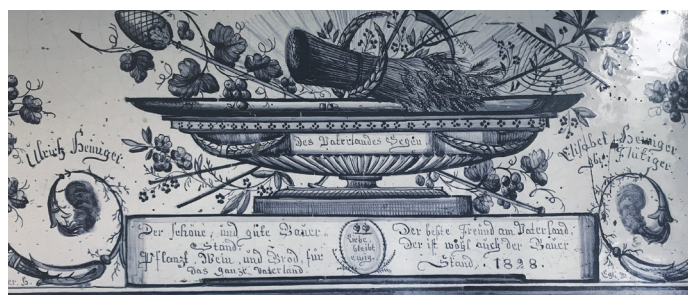 Ulrich Heiniger
Elisabet Heiniger
Des Vaterlandes Segen.
Der schöne, und gute Bauer.
Stand.
Pflanzt, Wein, und Brod, für
das ganze Vaterland
Liebe
bleibt
ewig.
Der beste Freund am Vaterland.
Der ist wohl auch der Bauer
Stand. 1828.